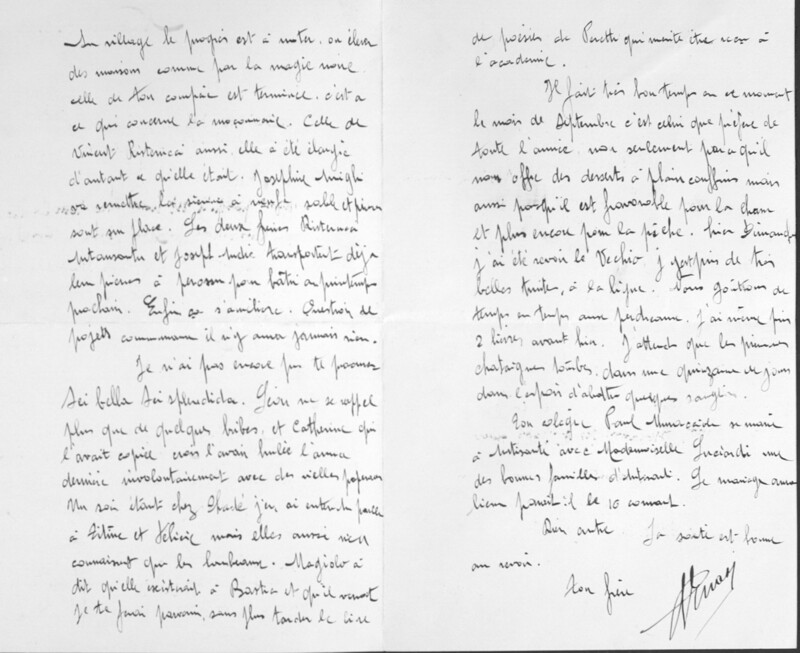 Au village le progrès est à noter, on élève
des maisons comme par la magie noire
celle de ton compère est terminée, c'est à
ce qui concerne la maçonnerie. Celle de
Vincent Ristorucci aussi, elle a été élargie
d'autant ce qu'elle était. Joséphine
va remettre la sienne à neuf, sable et pierres
sont sur place. Les deux frères Ristorucci
et Joseph transportent déjà
leurs pierres à pour bâtir au printemps
prochain. Enfin ça s'améliore. Question de
projets communaux il n'y aura jamais rien.
Je n'ai pas encore pu te procurer
Sei bella Sei splendida. ne se rappel
plus que de quelques bribes, et Catherine qui
l'avait copiée crois l'avoir brulée l'année
dernière involontairement avec des vielles paperasses
Un soir étant chez j'en ai entendu parler
à Titine et Félicie mais elles aussi n'en
connaissent que des lambeaux. à
dit qu'elle existerait à Bastia et qu'il
Je te ferai parvenir, sans plus tarder le livre
de poésies de qui mérite être reçu à
l'académie.
Il fait très bon temps en ce moment
le mois de Septembre c'est celui que préfère de
toute l'année, non seulement parce qu'il
nous offre des desserts à plein couffins mais
aussi parcequ'il est favorable pour la chasse
et plus encore pour la pêche. hier Dimanche
j'ai été revoir le Vechio, j'y ai pris de très
belles truites, à la ligne. Nous goûtons de
temps en temps aux perdreaux. j'ai même pris
2 lièvres avant hier. J'attends que les premières
chataignes tombes, dans une quinzaine de jours
dans l'espoir d'abattre quelques sangliers.
Ton collègue Paul se marie
à avec Mademoiselle une
des bonnes familles d'. Le mariage aura
lieu paraît-il le 10 courant.
Rien autre La santé est bonne
au revoir.
ton frère